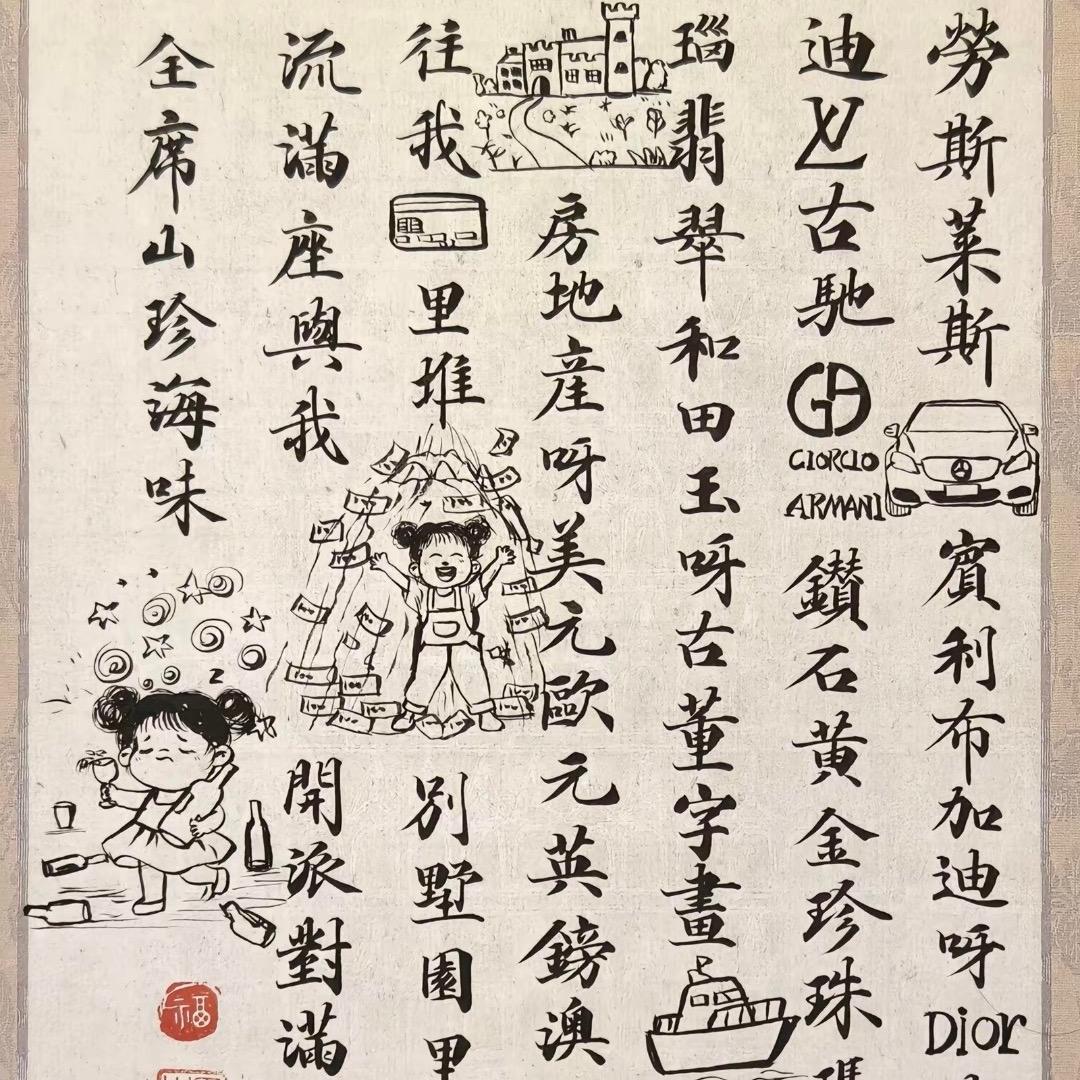 勞斯萊斯賓利布加迪呀Dior
迪LV古馳GA GIORGIO ARMANI鑽石黃金珍珠瑪
瑙翡翠和田玉呀古董字畫
房地産呀美元歐元英鎊澳
往我里堆別墅園
流滿座與我開派對滿
全席山珍海味
福